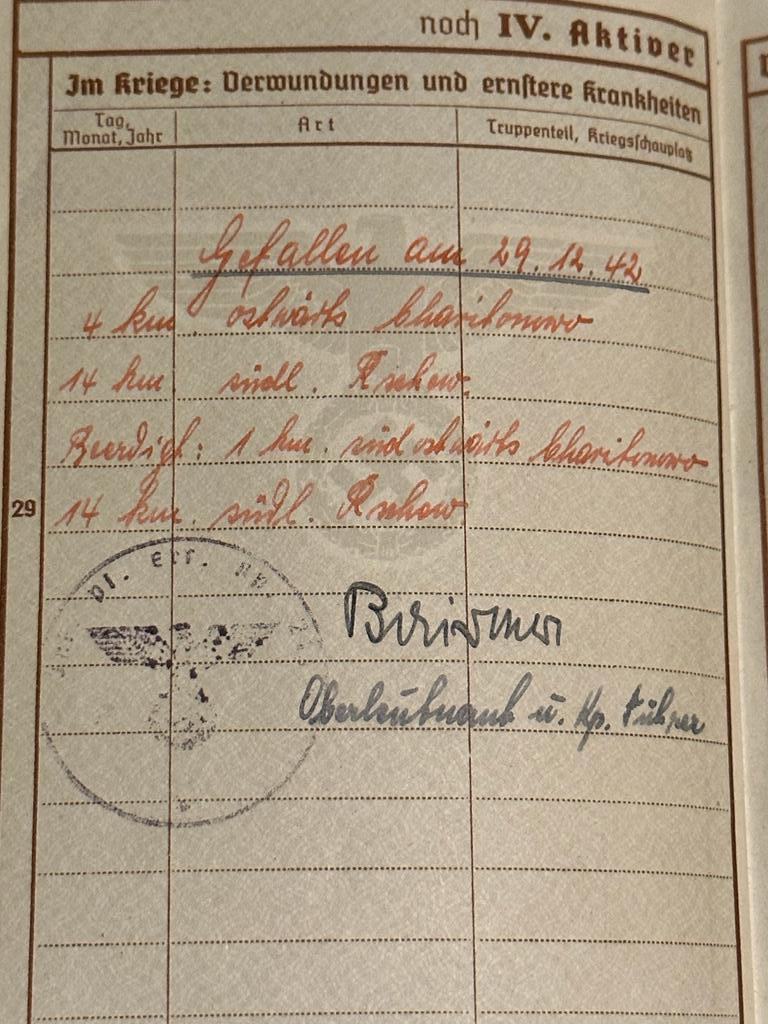 noch IV. Aktiver
Im Kriege: Verwundungen und ernstere Krankheiten
Tag, Monat, Jahr
Art
Truppenteil, Kriegsschauplatz
Gefallen am 29.12.42
4 km. ostwärts Charitonowo
14 km. südl. Rschew.
Beerdigt: 1 km. südostwärts Charitonowo
29
14 km. südl. Rschew
Oberleutnant u. Kp. Führer